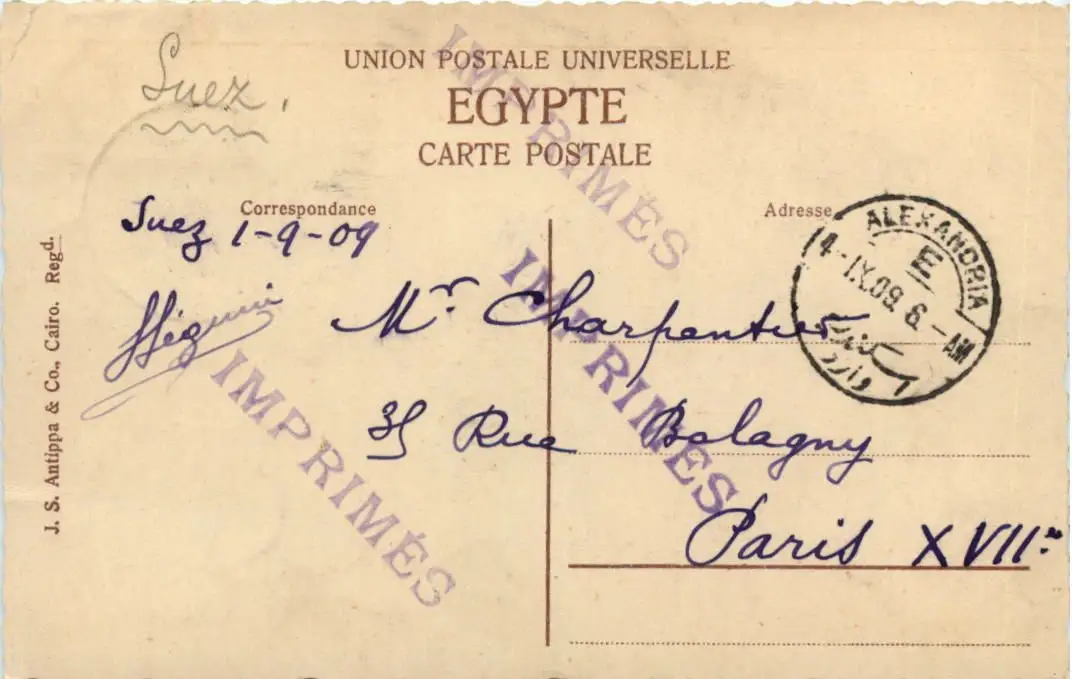 Suez.
UNION POSTALE UNIVERSELLE
EGYPTE
CARTE POSTALE
Correspondance
Adresse
Suez 1-9-09
Mr Charpentier
35 Rue Balagny
Paris XVIIe
ALEXANDRIA
E
4-IX.09. 6.-AM
IMPRIMÉS
IMPRIMÉS
IMPRIMÉS
J. S. Antippa & Co., Cairo. Regd.